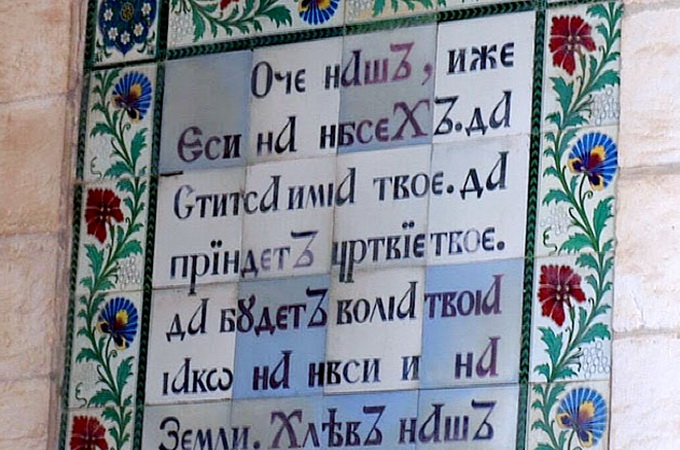 Оче нашъ, иже
Єси на нбсехъ. да
Ститса имꙗ твоє. да
прїидетъ цртвїе твоє.
да бꙋдетъ волꙗ твоꙗ
ꙗкѡ на нвси и на
Земли. Хлѣвъ нашъ